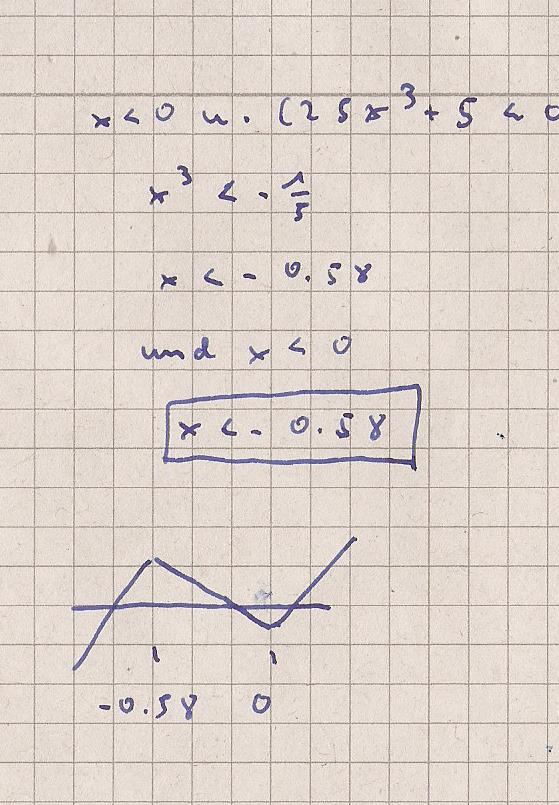 x < 0 u. (25x³ + 5 < 0
x³ < - 1/5
x < - 0.58
und x < 0
x < - 0.58
-0.58 0